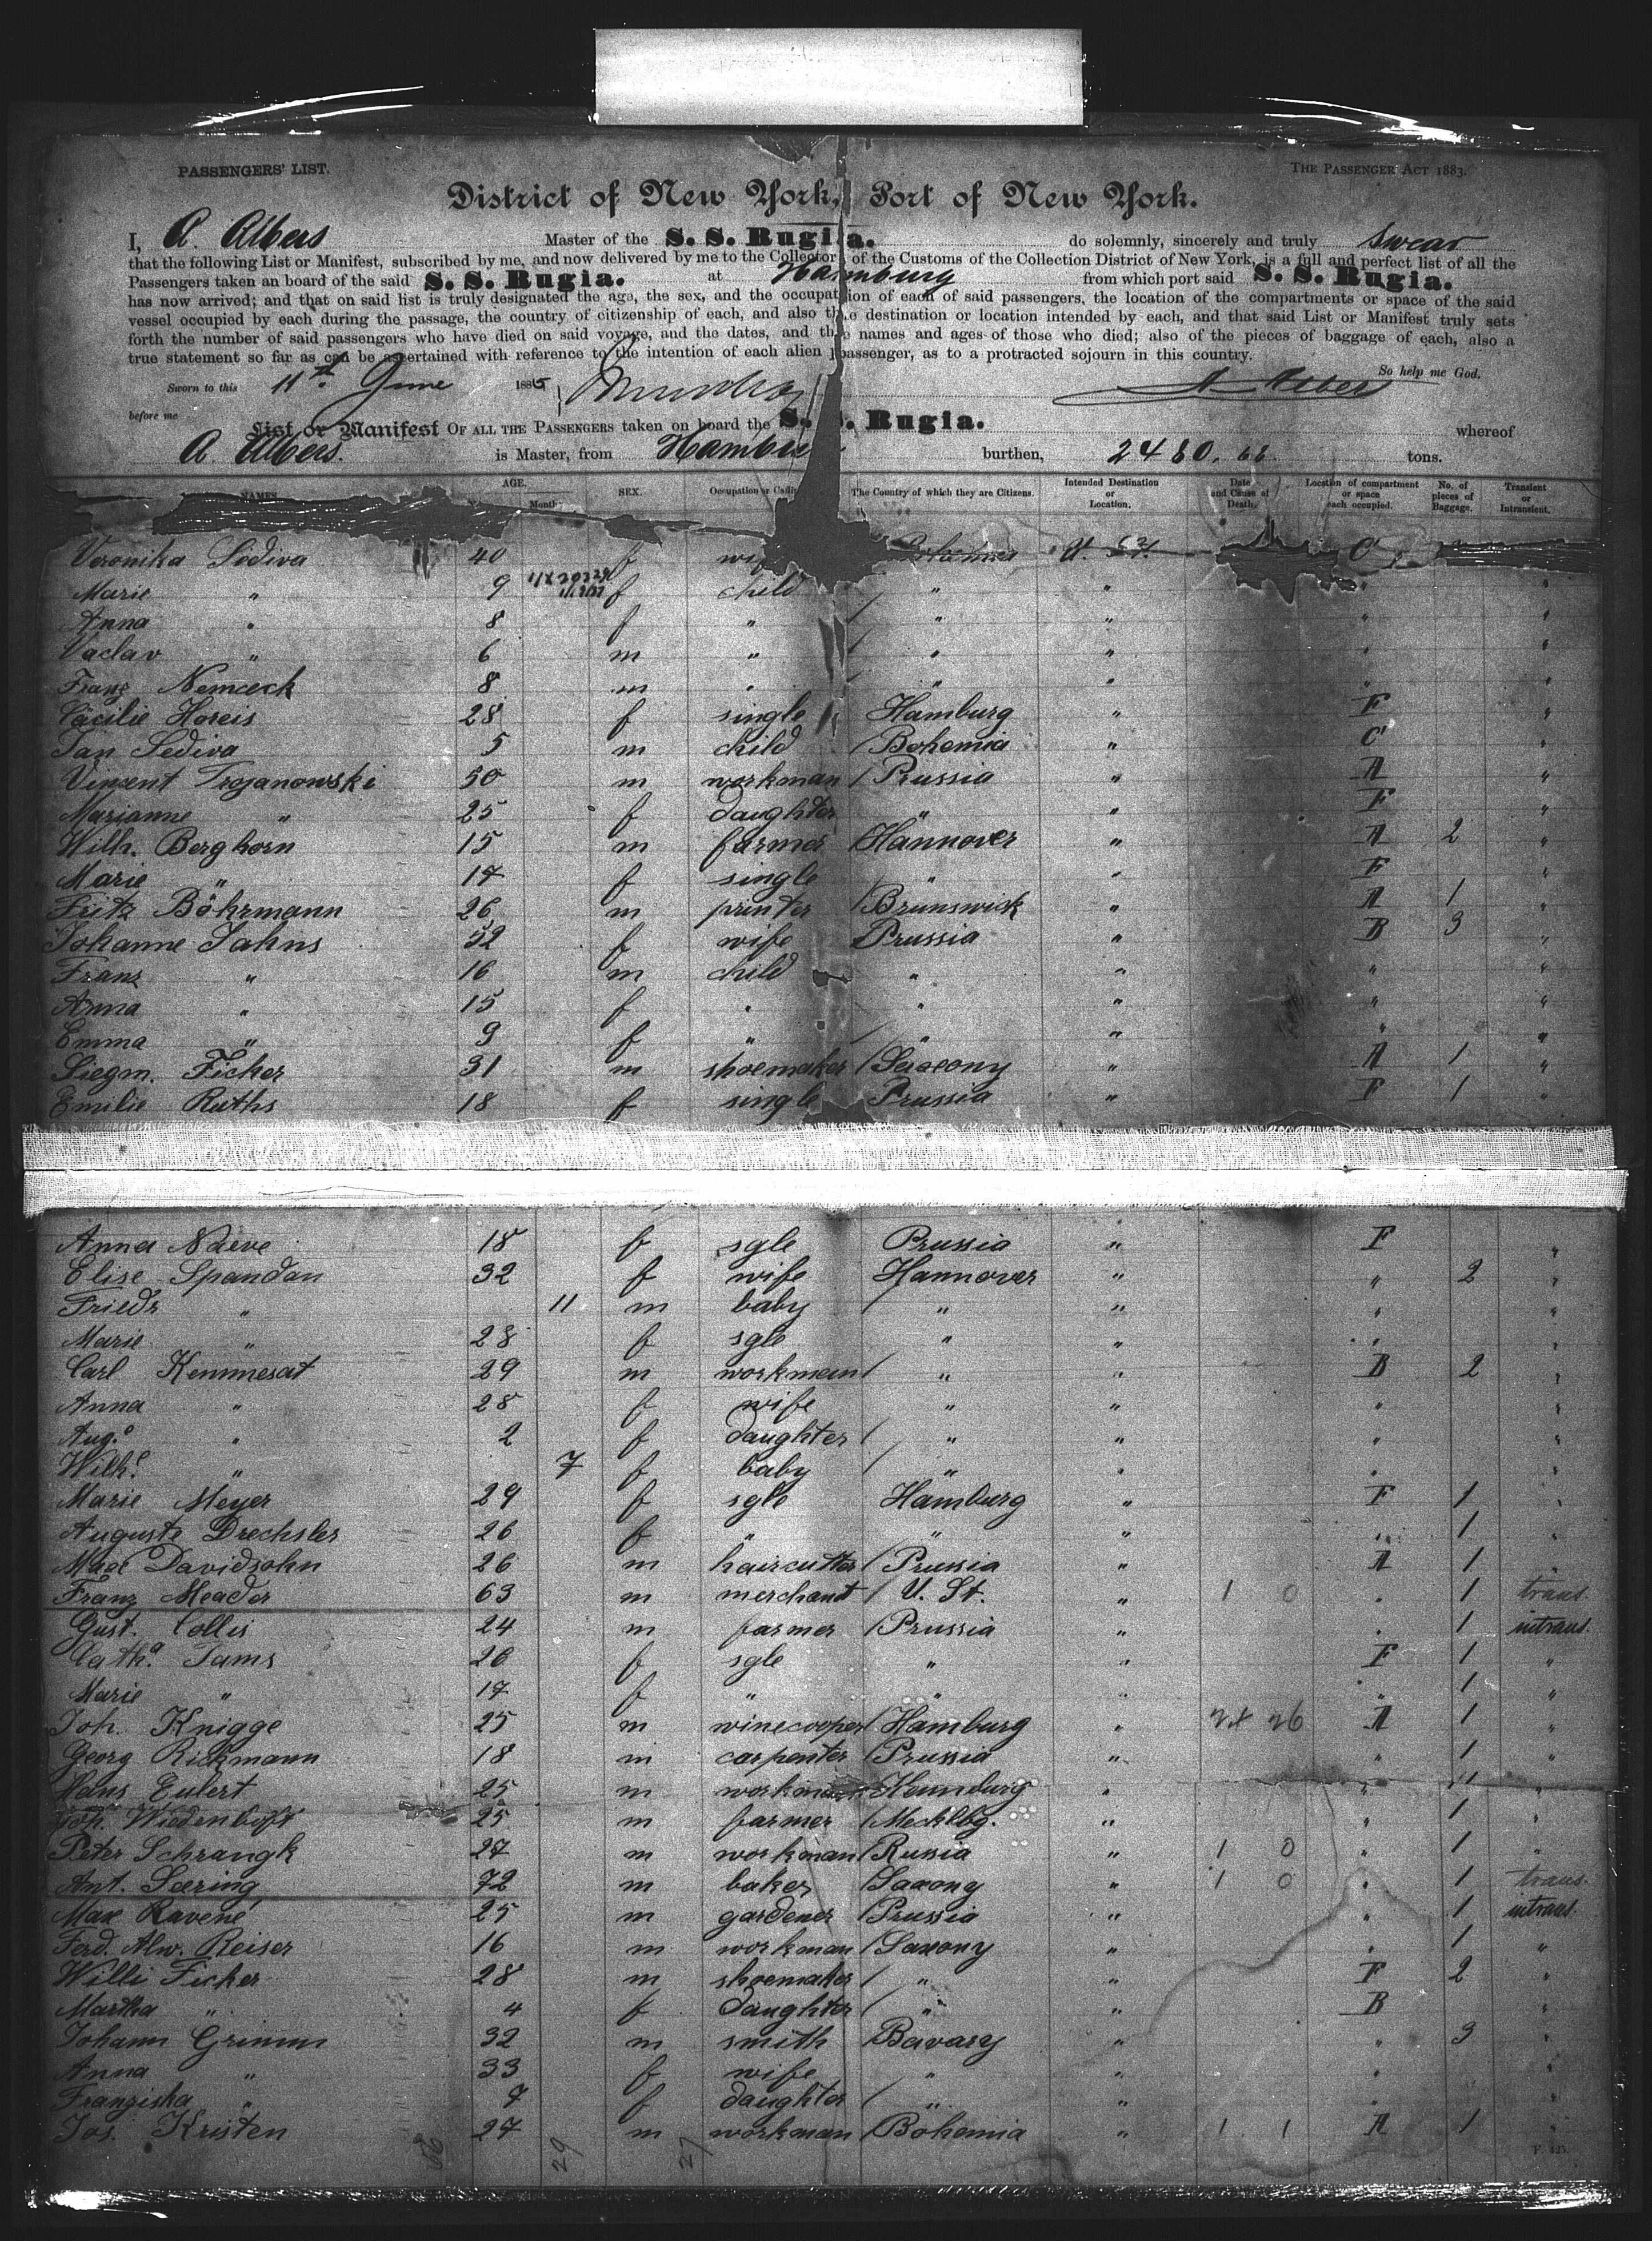 PASSENGERS' LIST.
THE PASSENGER ACT 1883.
District of New York, Port of New York.
I, A. Albers Master of the S. S. Rugia. do solemnly, sincerely and truly swear
that the following List or Manifest, subscribed by me, and now delivered by me to the Collector of the Customs of the Collection District of New York, is a full and perfect list of all the
Passengers taken an board of the said S. S. Rugia. at Hamburg from which port said S. S. Rugia.
has now arrived; and that on said list is truly designated the age, the sex, and the occupation of each of said passengers, the location of the compartments or space of the said
vessel occupied by each during the passage, the country of citizenship of each, and also the destination or location intended by each, and that said List or Manifest truly sets
forth the number of said passengers who have died on said voyage, and the dates, and the names and ages of those who died; also of the pieces of baggage of each, also a
true statement so far as can be ascertained with reference to the intention of each alien passenger, as to a protracted sojourn in this country.
So help me God.
Sworn to this 11th June 1885 A. Albers
before me
List or Manifest OF ALL THE PASSENGERS taken on board the S. S. Rugia. whereof
A. Albers. is Master, from Hamburg burthen, 2480. 68 tons.
NAMES AGE. Month SEX. Occupation or The Country of which they are Citizens. Intended Destination or Location. Date and Cause of Death. Location of compartment or space each occupied. No. of pieces of Baggage. Transient or Intransient.
Veronika Sediva 40 f Bohemia U. St. C
Marie " 9 f child " " " "
Anna " 8 f " " " " "
Vaclav " 6 m " " " " "
Franz Nemceck 8 m " " " " "
Cäcilie Horeis 28 f single Hamburg " F "
Jan Sediva 5 m child Bohemia " C "
Vincent Trojanowski 50 m workman Prussia " A "
Marianne " 25 f daughter " " F "
Wilh. Berghorn 15 m farmer Hannover " A 2 "
Marie " 17 f single " " F "
Fritz Böhrmann 26 m printer Brunswick " A 1 "
Johanne Jahns 52 f wife Prussia " B 3 "
Franz " 16 m child " " " "
Anna " 15 f " " " " "
Emma " 9 f " " " " "
Siegm. Ficher 31 m shoemaker Saxony " A 1 "
Emilie Ruths 18 f single Prussia " F 1 "
Anna Naeve 18 f sgle Prussia " F "
Elise Spandau 32 f wife Hannover " " 2 "
Friedr " 11 m baby " " " "
Marie " 28 f sgle " " " "
Carl Kemmesat 29 m workman " " B 2 "
Anna " 28 f wife " " " "
Aug.e " 2 f daughter " " " "
Wilh.e " 7 f baby " " " "
Marie Meyer 29 f sgle Hamburg " F 1 "
Auguste Drechsler 26 f " " " " 1 "
Max Davidsohn 26 m haircutter Prussia " A 1 "
Franz Meader 63 m merchant U. St. " 1 0 " 1 trans.
Gust. Collis 24 m farmer Prussia " " 1 intrans.
Cath.a Tams 20 f sgle " " F 1 "
Marie " 17 f " " " " 1 "
Joh. Knigge 25 m winecooper Hamburg " 24 26 A 1 "
Georg Rickmann 18 m carpenter Prussia " " 1 "
Hans Eulert 25 m workman Hamburg " " 1 "
Joh. Wiedenhöft 25 m farmer Mecklbg. " " 1 "
Peter Schrangk 27 m workman Russia " 1 0 " 1 "
Ant. Saering 72 m baker Saxony " 1 0 " 1 trans.
Max Ravené 25 m gardener Prussia " " 1 intrans.
Ferd. Alw. Reiser 16 m workman Saxony " " 1 "
Willi Ficher 28 m shoemaker " " F 2 "
Martha " 4 f daughter " " B "
Johann Grimm 32 m smith Bavary " " 3 "
Anna " 33 f wife " " " "
Franziska " 7 f daughter " " " "
Jos. Kristen 27 m workman Bohemia " 1 1 A 1 "
29 27